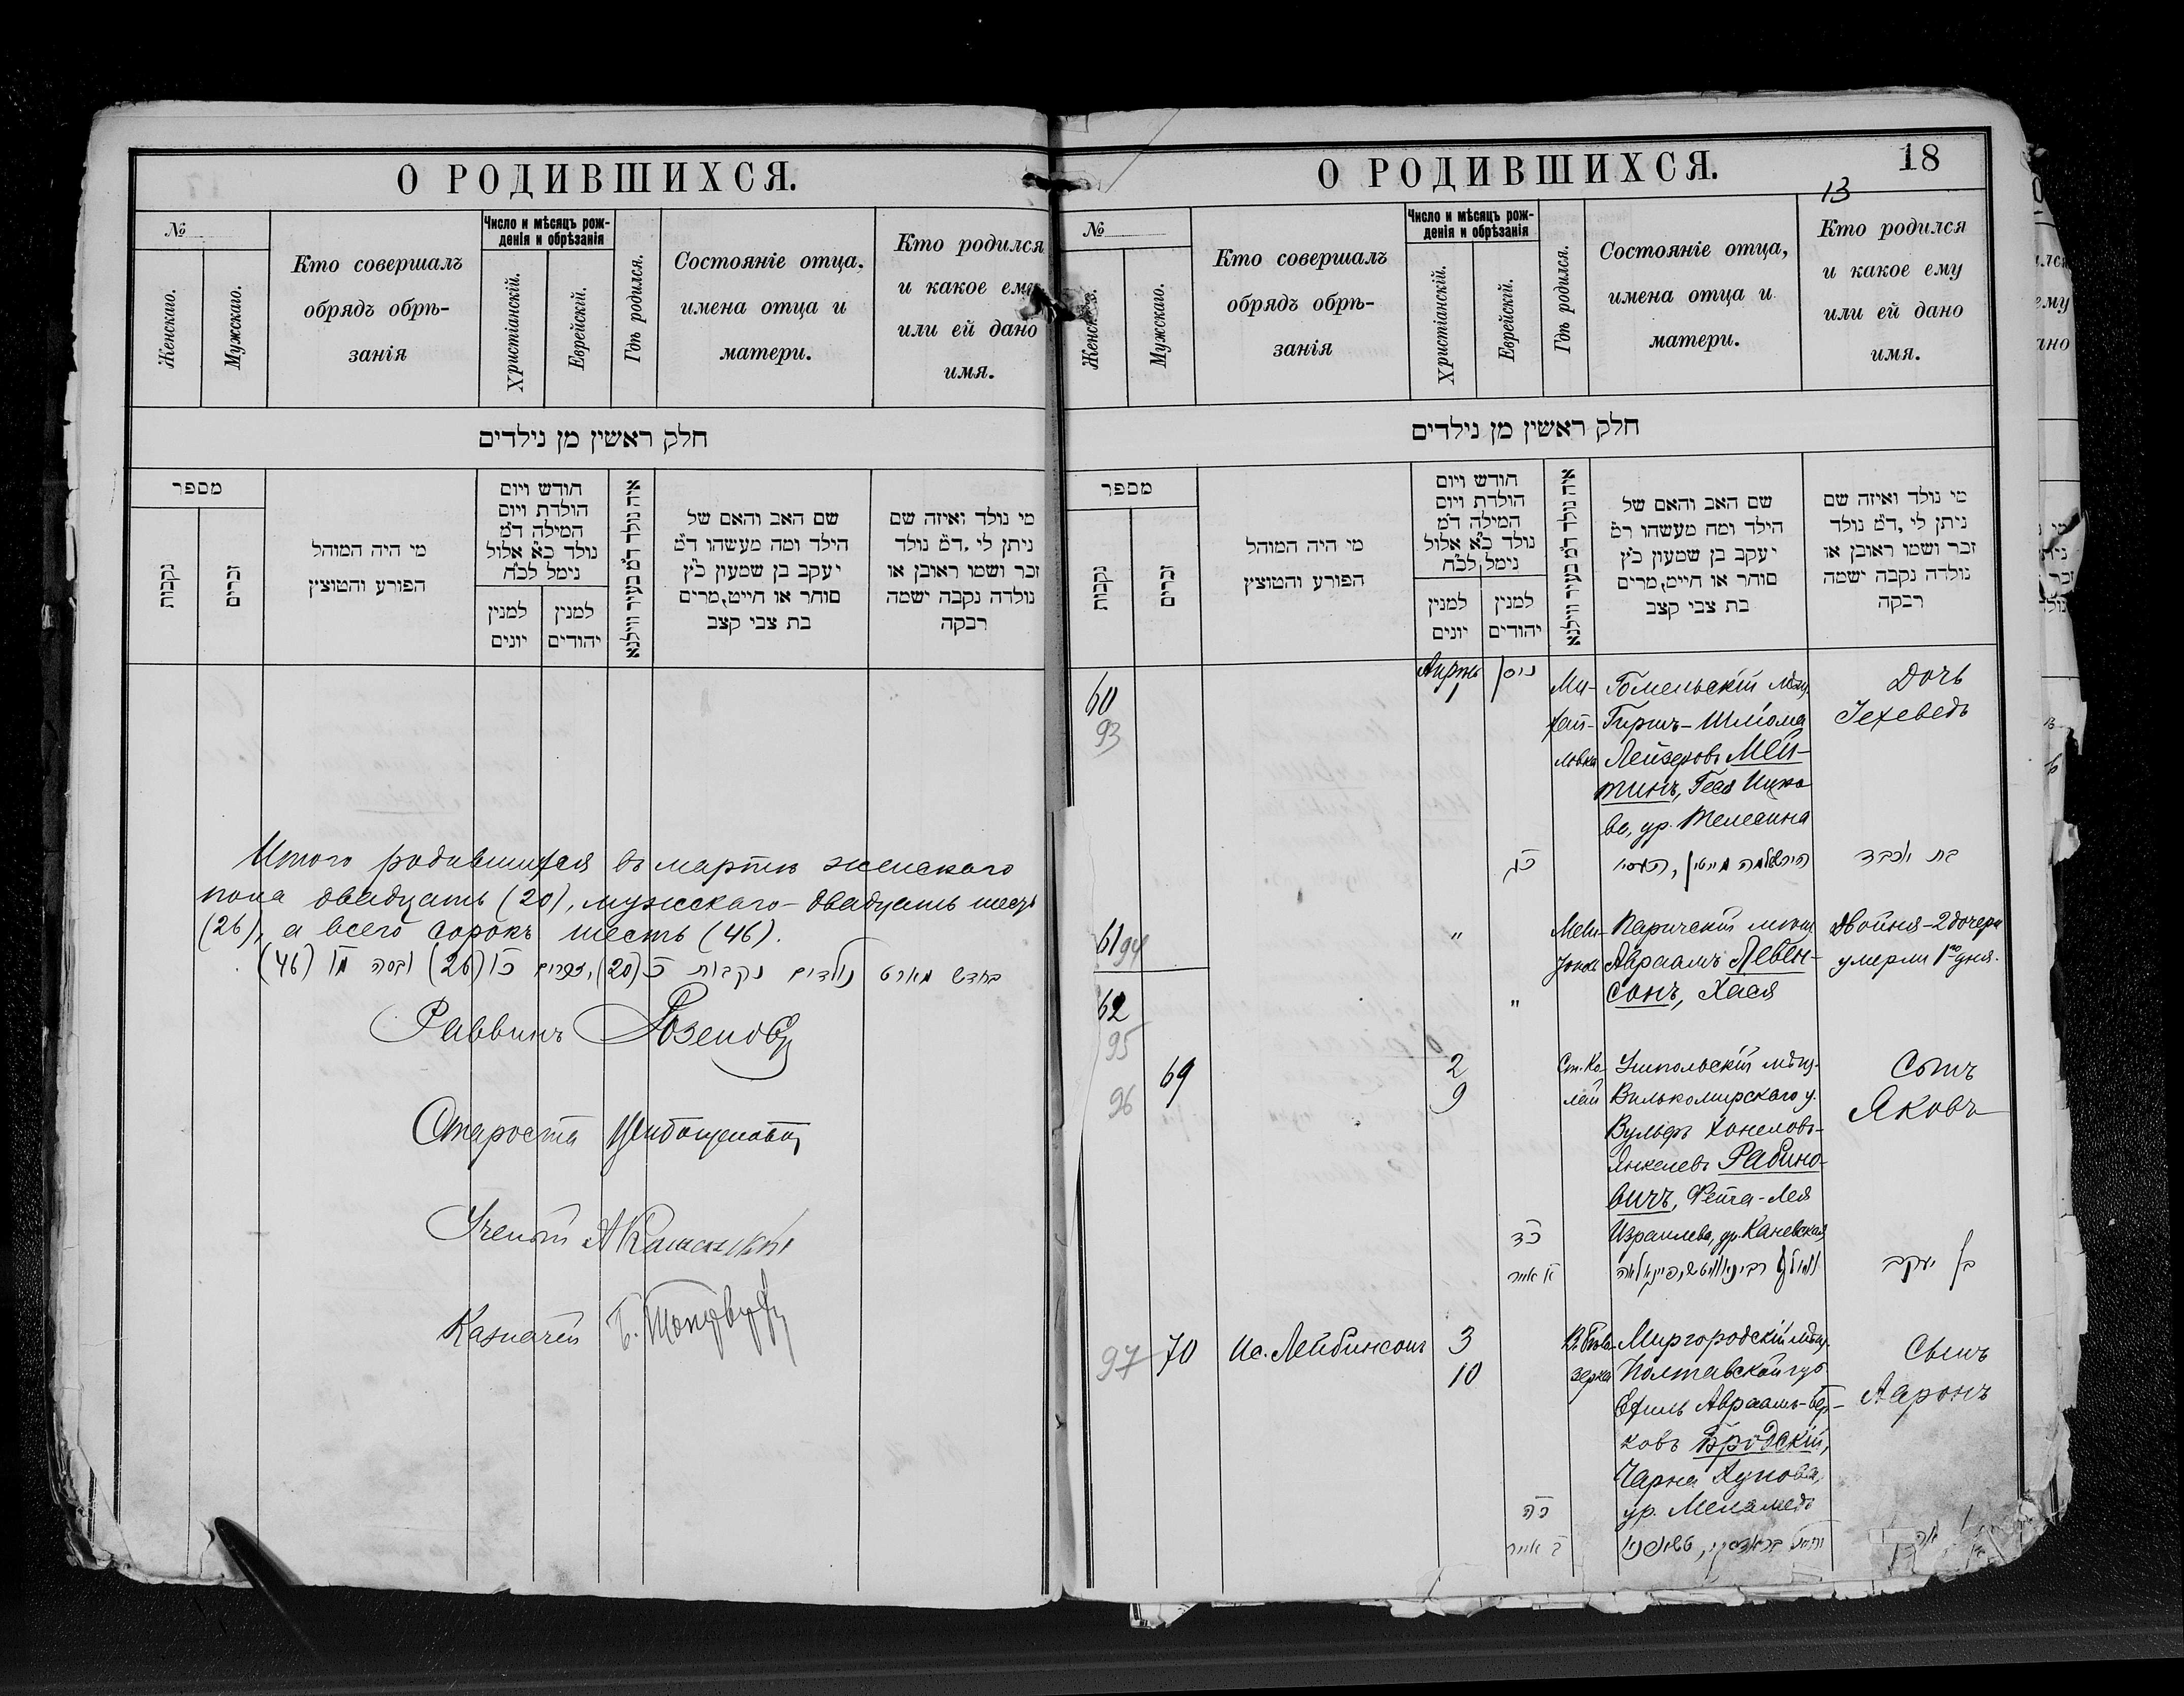 О РОДИВШИХСЯ.
№
Женскаго.
Мужскаго.
Кто совершалъ
обрядъ обрѣ-
занія
Число и мѣсяцъ рож-
денія и обрѣзанія
Христіанскій.
Еврейскій.
Гдѣ родился.
Состояніе отца,
имена отца и
матери.
Кто родился
и какое ему
или ей дано
имя.
חלק ראשין מן נילדים
מספר
נקבות
זכרים
מי היה המוהל
הפורע והמוצץ
חודש ויום
הולדת ויום
המילה ד״מ
נולד כ״א אלול
נימל לכ״ח
למנין
יונים
למנין
יהודים
איה נולד ד״מ בעיר ווילנא
שם האב והאם של
הילד ומה מעשהו ד״מ
יעקב בן שמעון כ״ץ
סוחר או חייט, מרים
בת צבי קצב
מי נולד ואיזה שם
ניתן לי, ד״מ נולד
זכר ושמו ראובן או
נולדה נקבה ישמה
רבקה
Итого родившихся въ мартѣ женскаго
пола двадцать (20), мужскаго - двадцать шесть
(26), а всего сорокъ шесть (46).
בחדש מארט נולדים נקבות כ (20), זכרים כו (26) ובסה מו (46)
Раввинъ
Староста
Ученый
Казначей
О РОДИВШИХСЯ.
18
13
№
Женскаго.
Мужскаго.
Кто совершалъ
обрядъ обрѣ-
занія
Число и мѣсяцъ рож-
денія и обрѣзанія
Христіанскій.
Еврейскій.
Гдѣ родился.
Состояніе отца,
имена отца и
матери.
Кто родился
и какое ему
или ей дано
имя.
חלק ראשין מן נילדים
מספר
נקבות
זכרים
מי היה המוהל
הפורע והמוצץ
חודש ויום
הולדת ויום
המילה ד״מ
נולד כ״א אלול
נימל לכ״ח
למנין
יונים
למנין
יהודים
איה נולד ד״מ בעיר ווילנא
שם האב והאם של
הילד ומה מעשהו ד״מ
יעקב בן שמעון כ״ץ
סוחר או חייט, מרים
בת צבי קצב
מי נולד ואיזה שם
ניתן לי, ד״מ נולד
זכר ושמו ראובן או
נולדה נקבה ישמה
רבקה
60
93
Апрѣль
1
ניסן
כג
Ми-
хай-
ловка
Гомельскій мѣщ.
Гиршъ-Шліома
Лейзеровъ Мей-
тинъ, Геся Ицко-
ва, ур. Телесина
הירש שלמה מייטין, העסיו
Дочь
Іехеведъ
בת יוכבד
61
94
62
95
"
"
Паричскій мѣщ.
Авраамъ Левен-
сонъ, Хася
Двойня - 2 дочери
умерли 1го дня.
69
96
2
9
כד
א אייר
Ст. Ка-
лай
Ушпольскій мѣщ.
Вилькомирскаго у.
Вульфъ Хонеловъ-
Янкелевъ Рабино-
вичъ, Фейга-Лея
Израилева, ур. Каневская
וואולף רבינאוויטש, פייגא לאה
Сынъ
Яковъ
בן יעקב
97
70
Ис. Лейбинсонъ
3
10
כה
ב אייר
В. Бѣло-
зерка
Миргородскій мѣщ.
Полтавской губ.
Ехиль Авраамъ-Бер-
ковъ Бродскій,
Чарна
ур. Меламедъ
יחיאל בראדסקי, טשארניו
Сынъ
Ааронъ